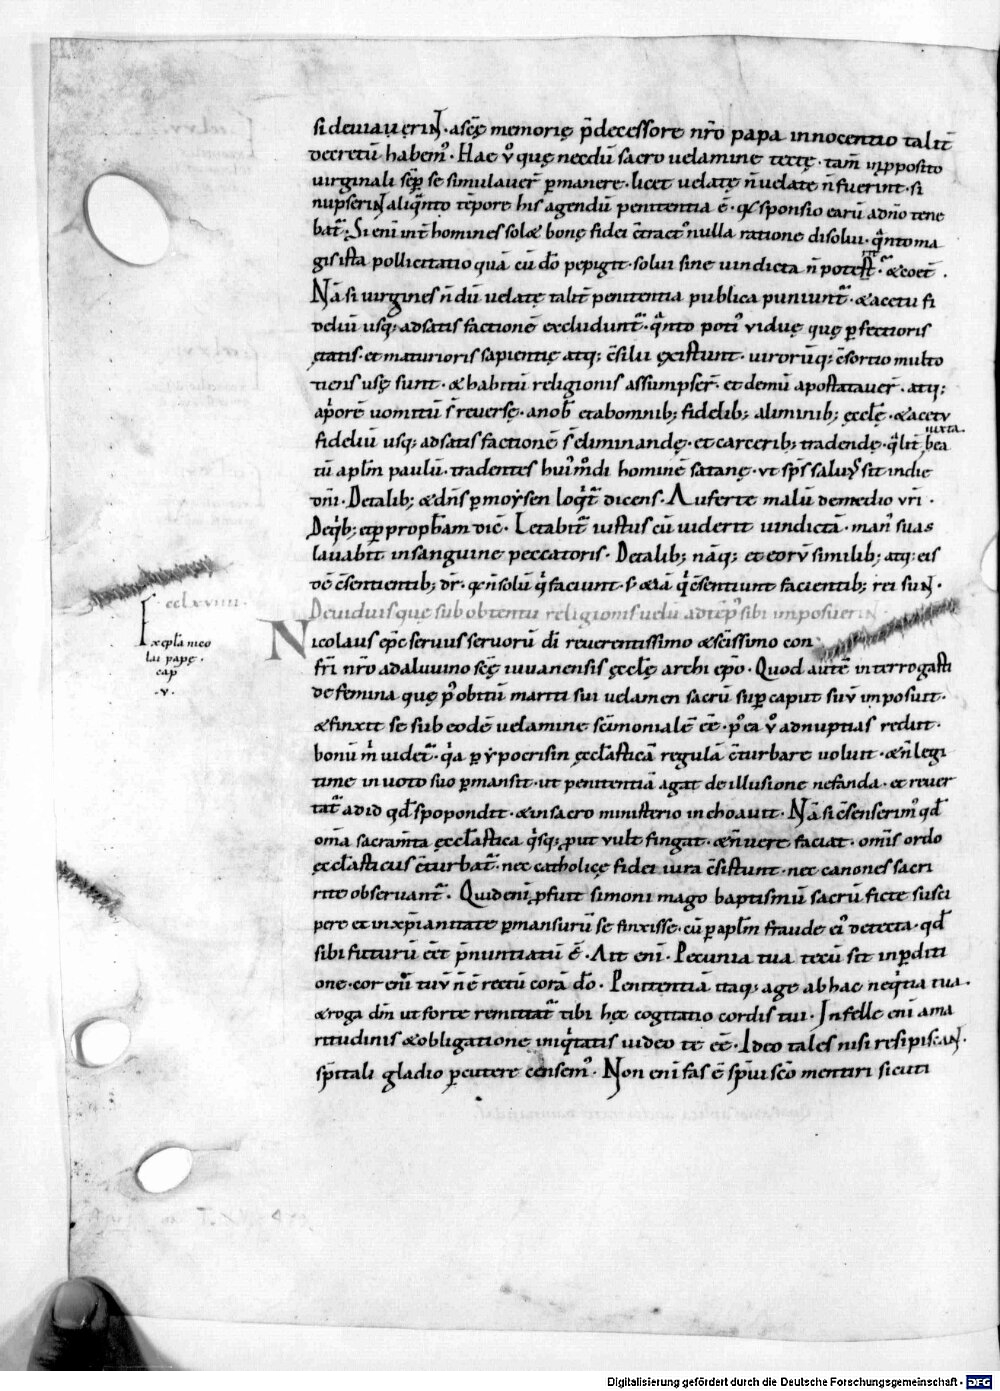 si deuiauerin̄t · a scę̄ memorię p̄decessore nr̄o papa innocentio talit̄
decretū habem᷒ · Hae ỽ quę necdū sacro uelamine tectę · tam̄ in ꝓposito
uirginali sēp se simulauer̄ ꝑmanere · licet uelatę n̄ uelatę n̄ fuerint · si
nupserint aliqͣnto tēpore his agendū penitentia ē · qꝫ sponsio earū a dn̄o tene
bat᷑ · Si enī int̄ homines solæ bonę fidei c̄tract᷒ nulla ratione dissolui · qͣnto ma
gis ista pollicitatio quā cū dō pepigit · solui sine uindicta n̄ potest · & coet̄ .
Nā si uirgines n̄ dū uelatę talit̄ penitentia publica puniunt᷑ · & a cetu fi
deliū usq; ad satisfactionē excludunt᷑ · qͣnto poti᷒ uiduę quę ꝑfectioris
ętatis · et maturioris sapientię atq; c̄silii existunt · uirorūq; c̄sortio multo
tiens usę sunt · & habitū religionis assumpser̄ · et demū apostatauer̄ · atq;
a p̄ore uomitū s̄ reuersę · a nob̄ et ab omnib; fidelib; a liminib; ęccl̄ę · & a cetu
fideliū usq; ad satisfactionē s̄ eliminandę · et carcerib; tradendę · qͣlit̄ iuxta bea
tū apl̄m paulū · tradentes hui᷒modi hominē satanę · ut sp̄s saluus sit in die
dn̄i · De talib; & dn̄s ꝑ moysen loqͥt᷑ dicens · Auferte malū de medio ur̄i ·
De qͥb; et ꝑ propħam dic̄ · Letabit᷑ iustus cū uiderit uindictā · man᷒ suas
lauabit in sanguine peccatoris · De talib; nāq; et eorū similib; atq; eis
dē c̄sentientib; dr̄ · qꝫ n̄ solū qͥ faciunt · s; & iā qͥ c̄sentiunt facientib; rei sunt ·
De uiduis quę sub obtentu religionis uelū ad tēp᷒ sibi imposuerint ·
Nicolaus ep̄c seruus seruorū dī reuerentissimo & scīssimo con
fr̄i nr̄o adaluuino scę̄ iuuauensis ęccl̄ę archiep̄o · Quod autē interrogasti
de femina quę p᷒ obitū mariti sui uelamen sacrū sup̄ caput suū imposuit ·
& finxit se sub eodē uelamine sc̄imonialē ēē · p᷒ea ỽ ad nuptias rediit ·
bonū m̄ uidet᷑ · qͥa ꝑ ypocrisin ęccl̄asticā regulā c̄turbare uoluit · & n̄ legi
time in uoto suo ꝑmansit · ut penitentiā agat de illusione nefanda · et reuer
tat᷑ ad id qd̄ spopondit · & in sacro ministerio inchoauit · Nā si c̄senserim᷒ qd̄
om̄a sacram̄ta ęccl̄astica qͥsq; prout uult fingat · & n̄ uere faciat · om̄is ordo
ęccl̄asticus c̄turbat᷑ · nec catholicę fidei iura c̄sistunt · nec canones sacri
rite obseruant᷑ · Quid enī ꝓfuit simoni mago baptismū sacrū ficte susci
pere et in xp̄ianitate ꝑmansurū se finxisse · cū ꝑ apl̄m fraude ei᷒ detecta · qd̄
sibi futurū ēēt p̄nuntiatū ē · Ait enī · Pecunia tua tecū sit in ꝑditi
one · cor enī tuū n̄ ē rectū corā dō · Penitentiā itaq; age ab hac neqͥtia tua ·
& roga dm̄ ut forte remittat᷑ tibi hęc cogitatio cordis tui · In felle enī ama
ritudinis & obligatione iniqͥtatis uideo te ēē · Ideo tales nisi resipiscant ·
sp̄itali gladio ꝑcutere censem᷒ · Non enī fas ē sp̄ui sc̄o mentiri sicuti
cclxviiii ·
Ex epl̄a nico
lai papę ·
cap̄
· v ·
Digitalisierung gefördert durch die Deutsche Forschungsgemeinschaft - DFG